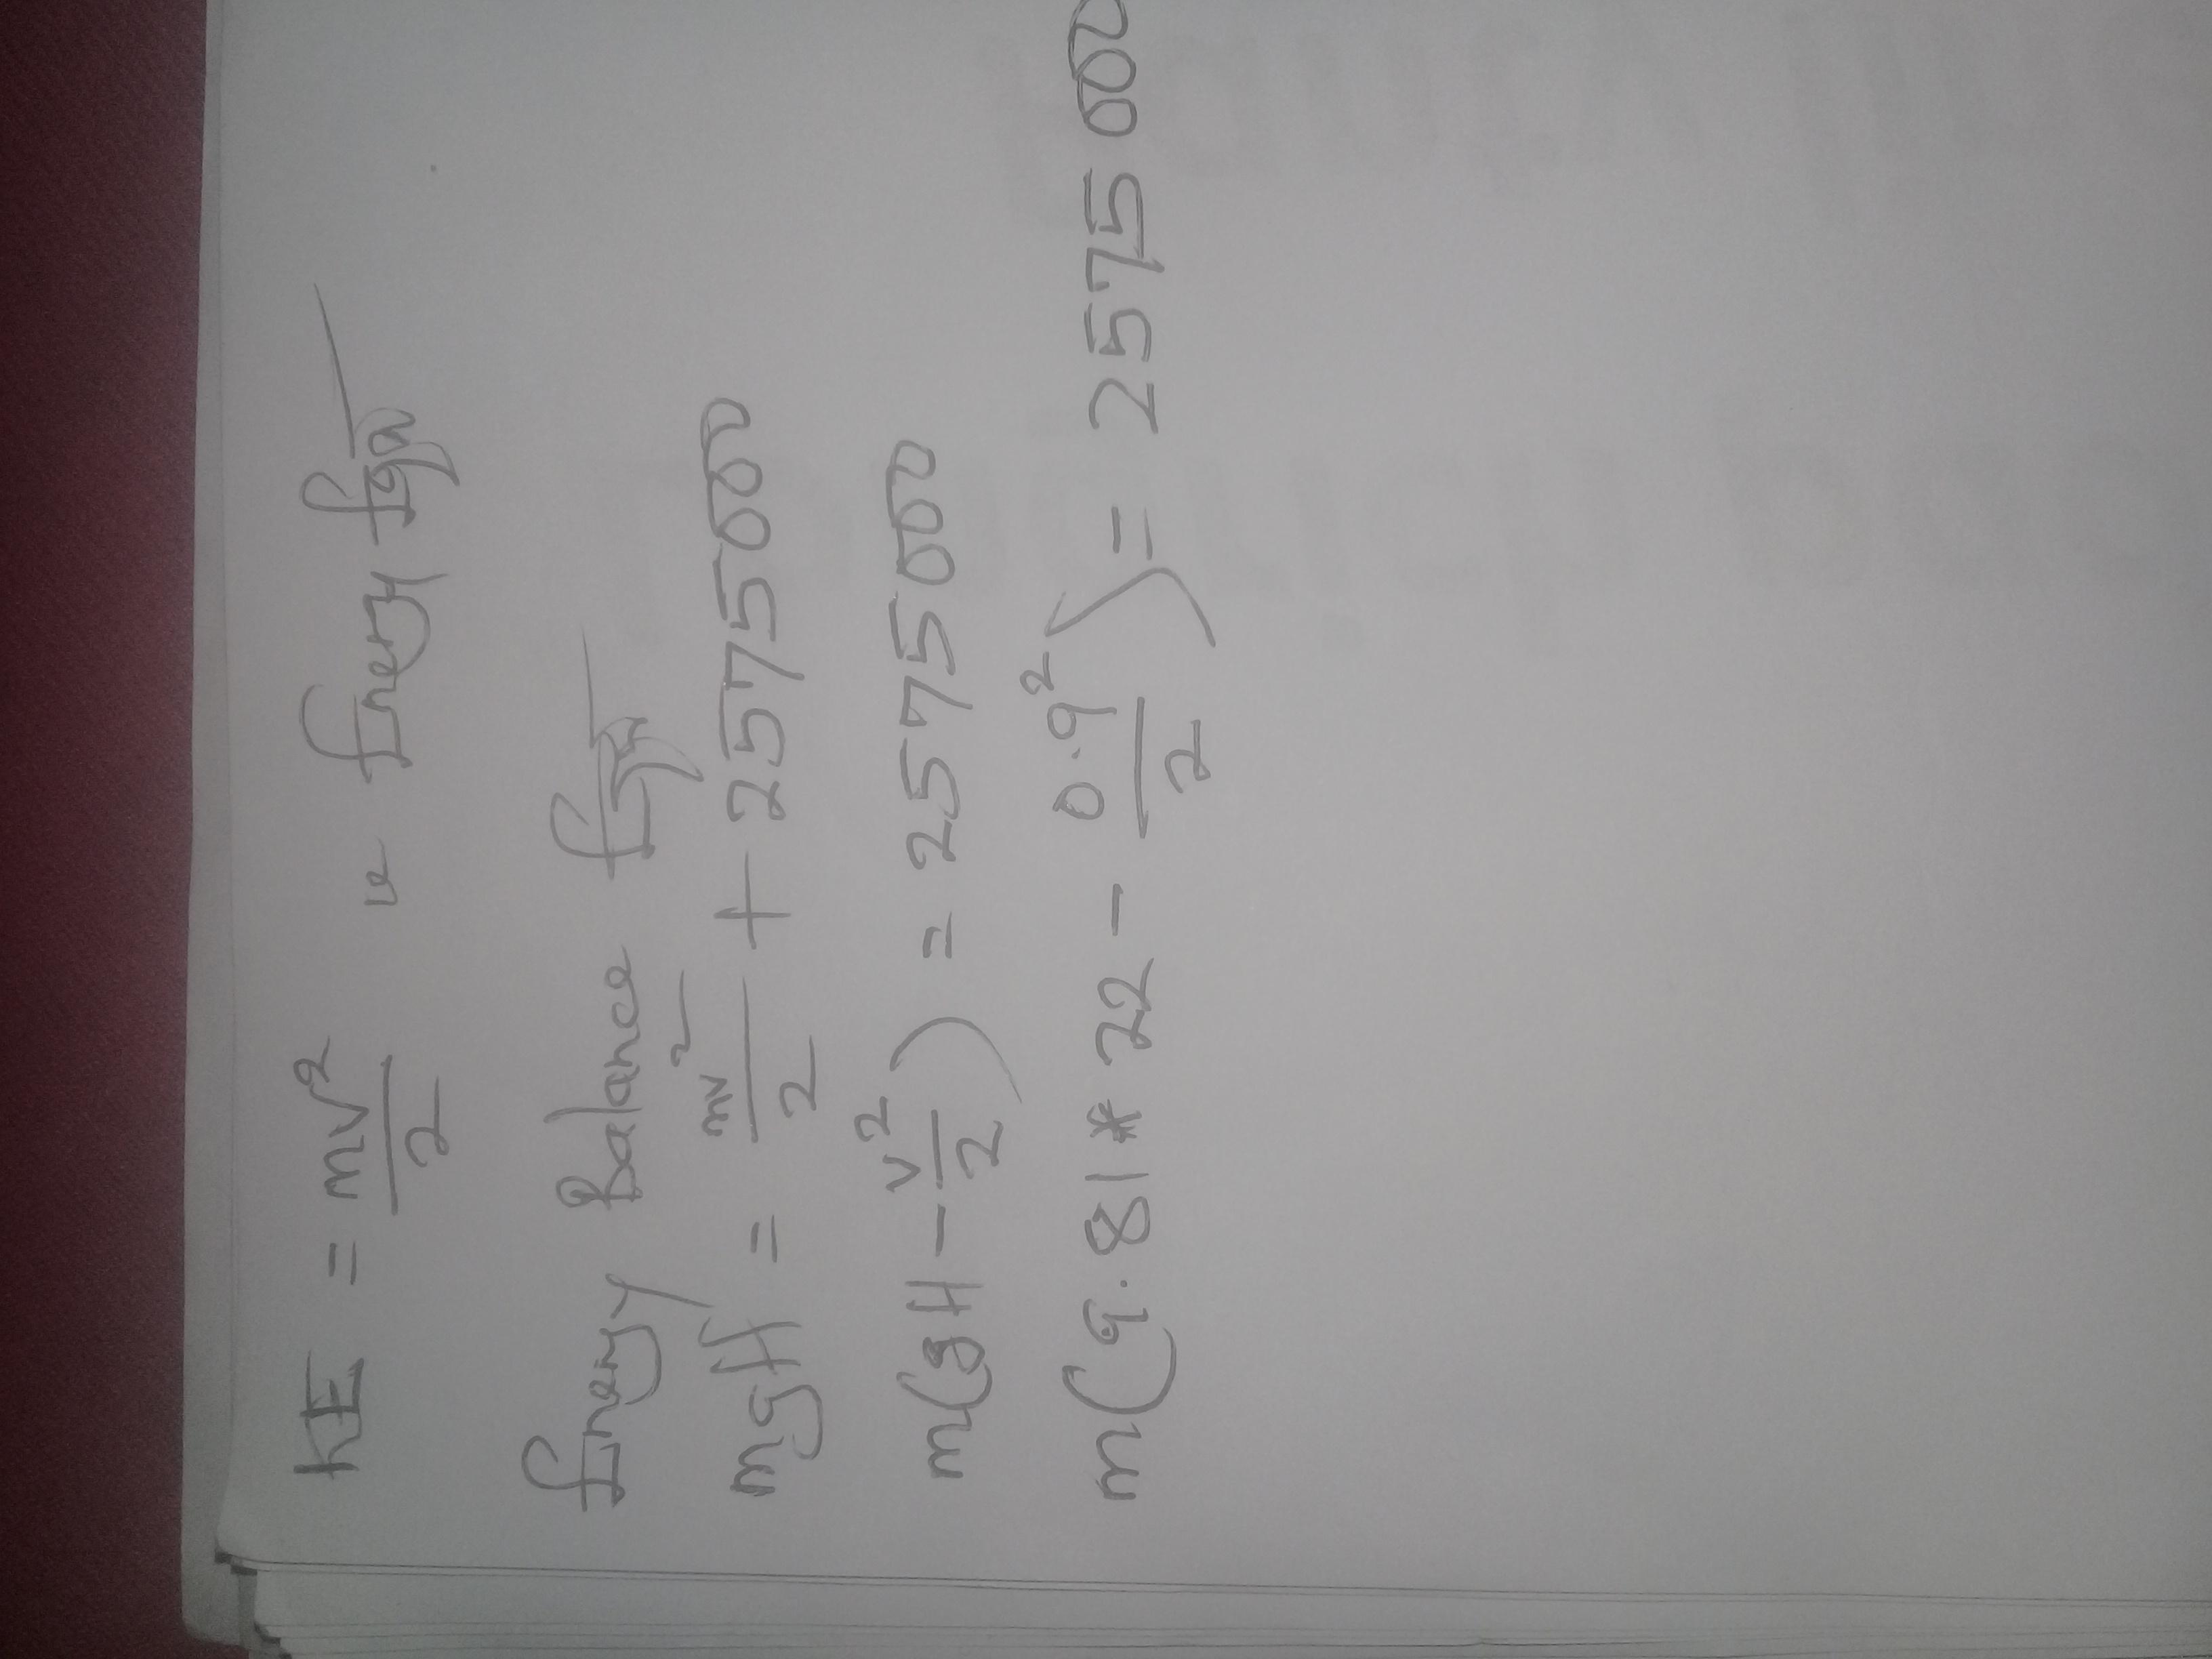 KE = mv²/2 ← Energy Eqn
Energy Balance Eqn
mgH = mv²/2 + 2575000
m(gH - v²/2) = 2575000
m(9.81*22 - 0.9²/2) = 2575000